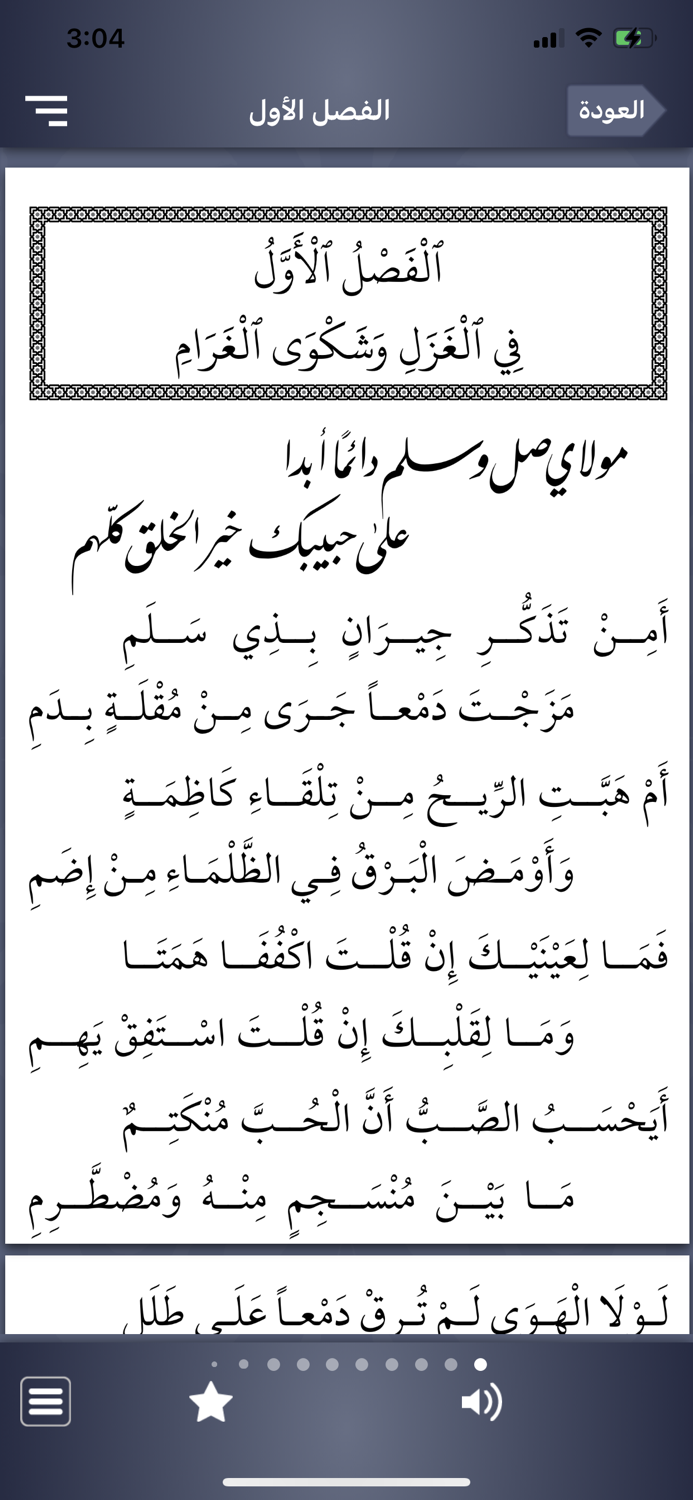 3:04
العودة
الفصل الأول
ٱلْفَصْلُ ٱلْأَوَّلُ
فِي ٱلْغَزَلِ وَشَكْوَى ٱلْغَرَامِ
مولاي صل وسلم دائمًا أبدا
على حبيبك خير الخلق كلّهم
أَمِنْ تَذَكُّرِ جِيرَانٍ بِذِي سَلَمِ
مَزَجْتَ دَمْعاً جَرَى مِنْ مُقْلَةٍ بِدَمِ
أَمْ هَبَّتِ الرِّيحُ مِنْ تِلْقَاءِ كَاظِمَةٍ
وَأَوْمَضَ الْبَرْقُ فِي الظَّلْمَاءِ مِنْ إِضَمِ
فَمَا لِعَيْنَيْكَ إِنْ قُلْتَ اكْفُفَا هَمَتَا
وَمَا لِقَلْبِكَ إِنْ قُلْتَ اسْتَفِقْ يَهِمِ
أَيَحْسَبُ الصَّبُّ أَنَّ الْحُبَّ مُنْكَتِمٌ
مَا بَيْنَ مُنْسَجِمٍ مِنْهُ وَمُضْطَّرِمِ
لَوْلَا الْهَوَى لَمْ تُرِقْ دَمْعاً عَلَى طَلَلِ